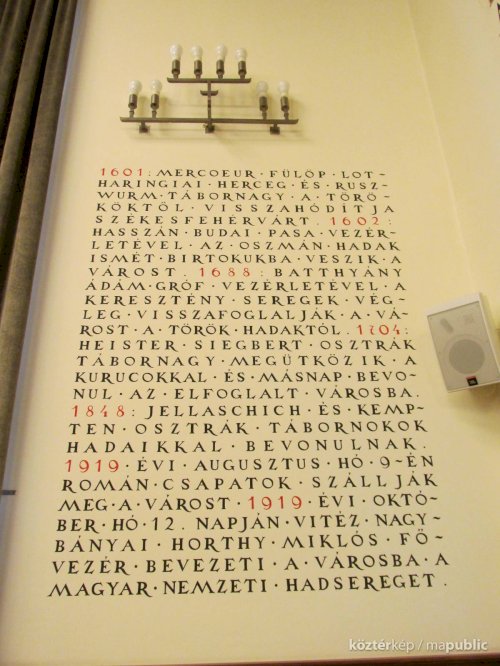 1601: MERCOEUR · FÜLÖP · LOT~
HARINGIAI · HERCEG · ÉS · RUSZ~
WURM · TÁBORNAGY · A · TÖRÖ~
KÖKTŐL · VISSZAHÓDÍTJA
SZÉKESFEHÉRVÁRT. 1602:
HASSZÁN · BUDAI · PASA · VEZÉR~
LETÉVEL · AZ · OSZMÁN · HADAK
ISMÉT · BIRTOKUKBA · VESZIK · A
VÁROST. 1688: BATTHYÁNY
ÁDÁM · GRÓF · VEZÉRLETÉVEL · A
KERESZTÉNY · SEREGEK · VÉG~
LEG · VISSZAFOGLALJÁK · A · VÁ~
ROST · A · TÖRÖK · HADAKTÓL. 1704:
HEISTER · SIEGBERT · OSZTRÁK
TÁBORNAGY · MEGÜTKÖZIK · A
KURUCOKKAL · ÉS · MÁSNAP · BEVO~
NUL · AZ · ELFOGLALT · VÁROSBA.
1848: JELLASCHICH · ÉS · KEMP~
TEN · OSZTRÁK · TÁBORNOKOK
HADAIKKAL · BEVONULNAK.
1919 · ÉVI · AUGUSZTUS · HÓ · 9~ÉN
ROMÁN · CSAPATOK · SZÁLLJÁK
MEG · A · VÁROST · 1919 · ÉVI · OKTÓ~
BER · HÓ · 12. NAPJÁN · VITÉZ · NAGY~
BÁNYAI · HORTHY · MIKLÓS · FŐ~
VEZÉR · BEVEZETI · A · VÁROSBA · A
MAGYAR · NEMZETI · HADSEREGET.
JBL
köztérkép / mapublic